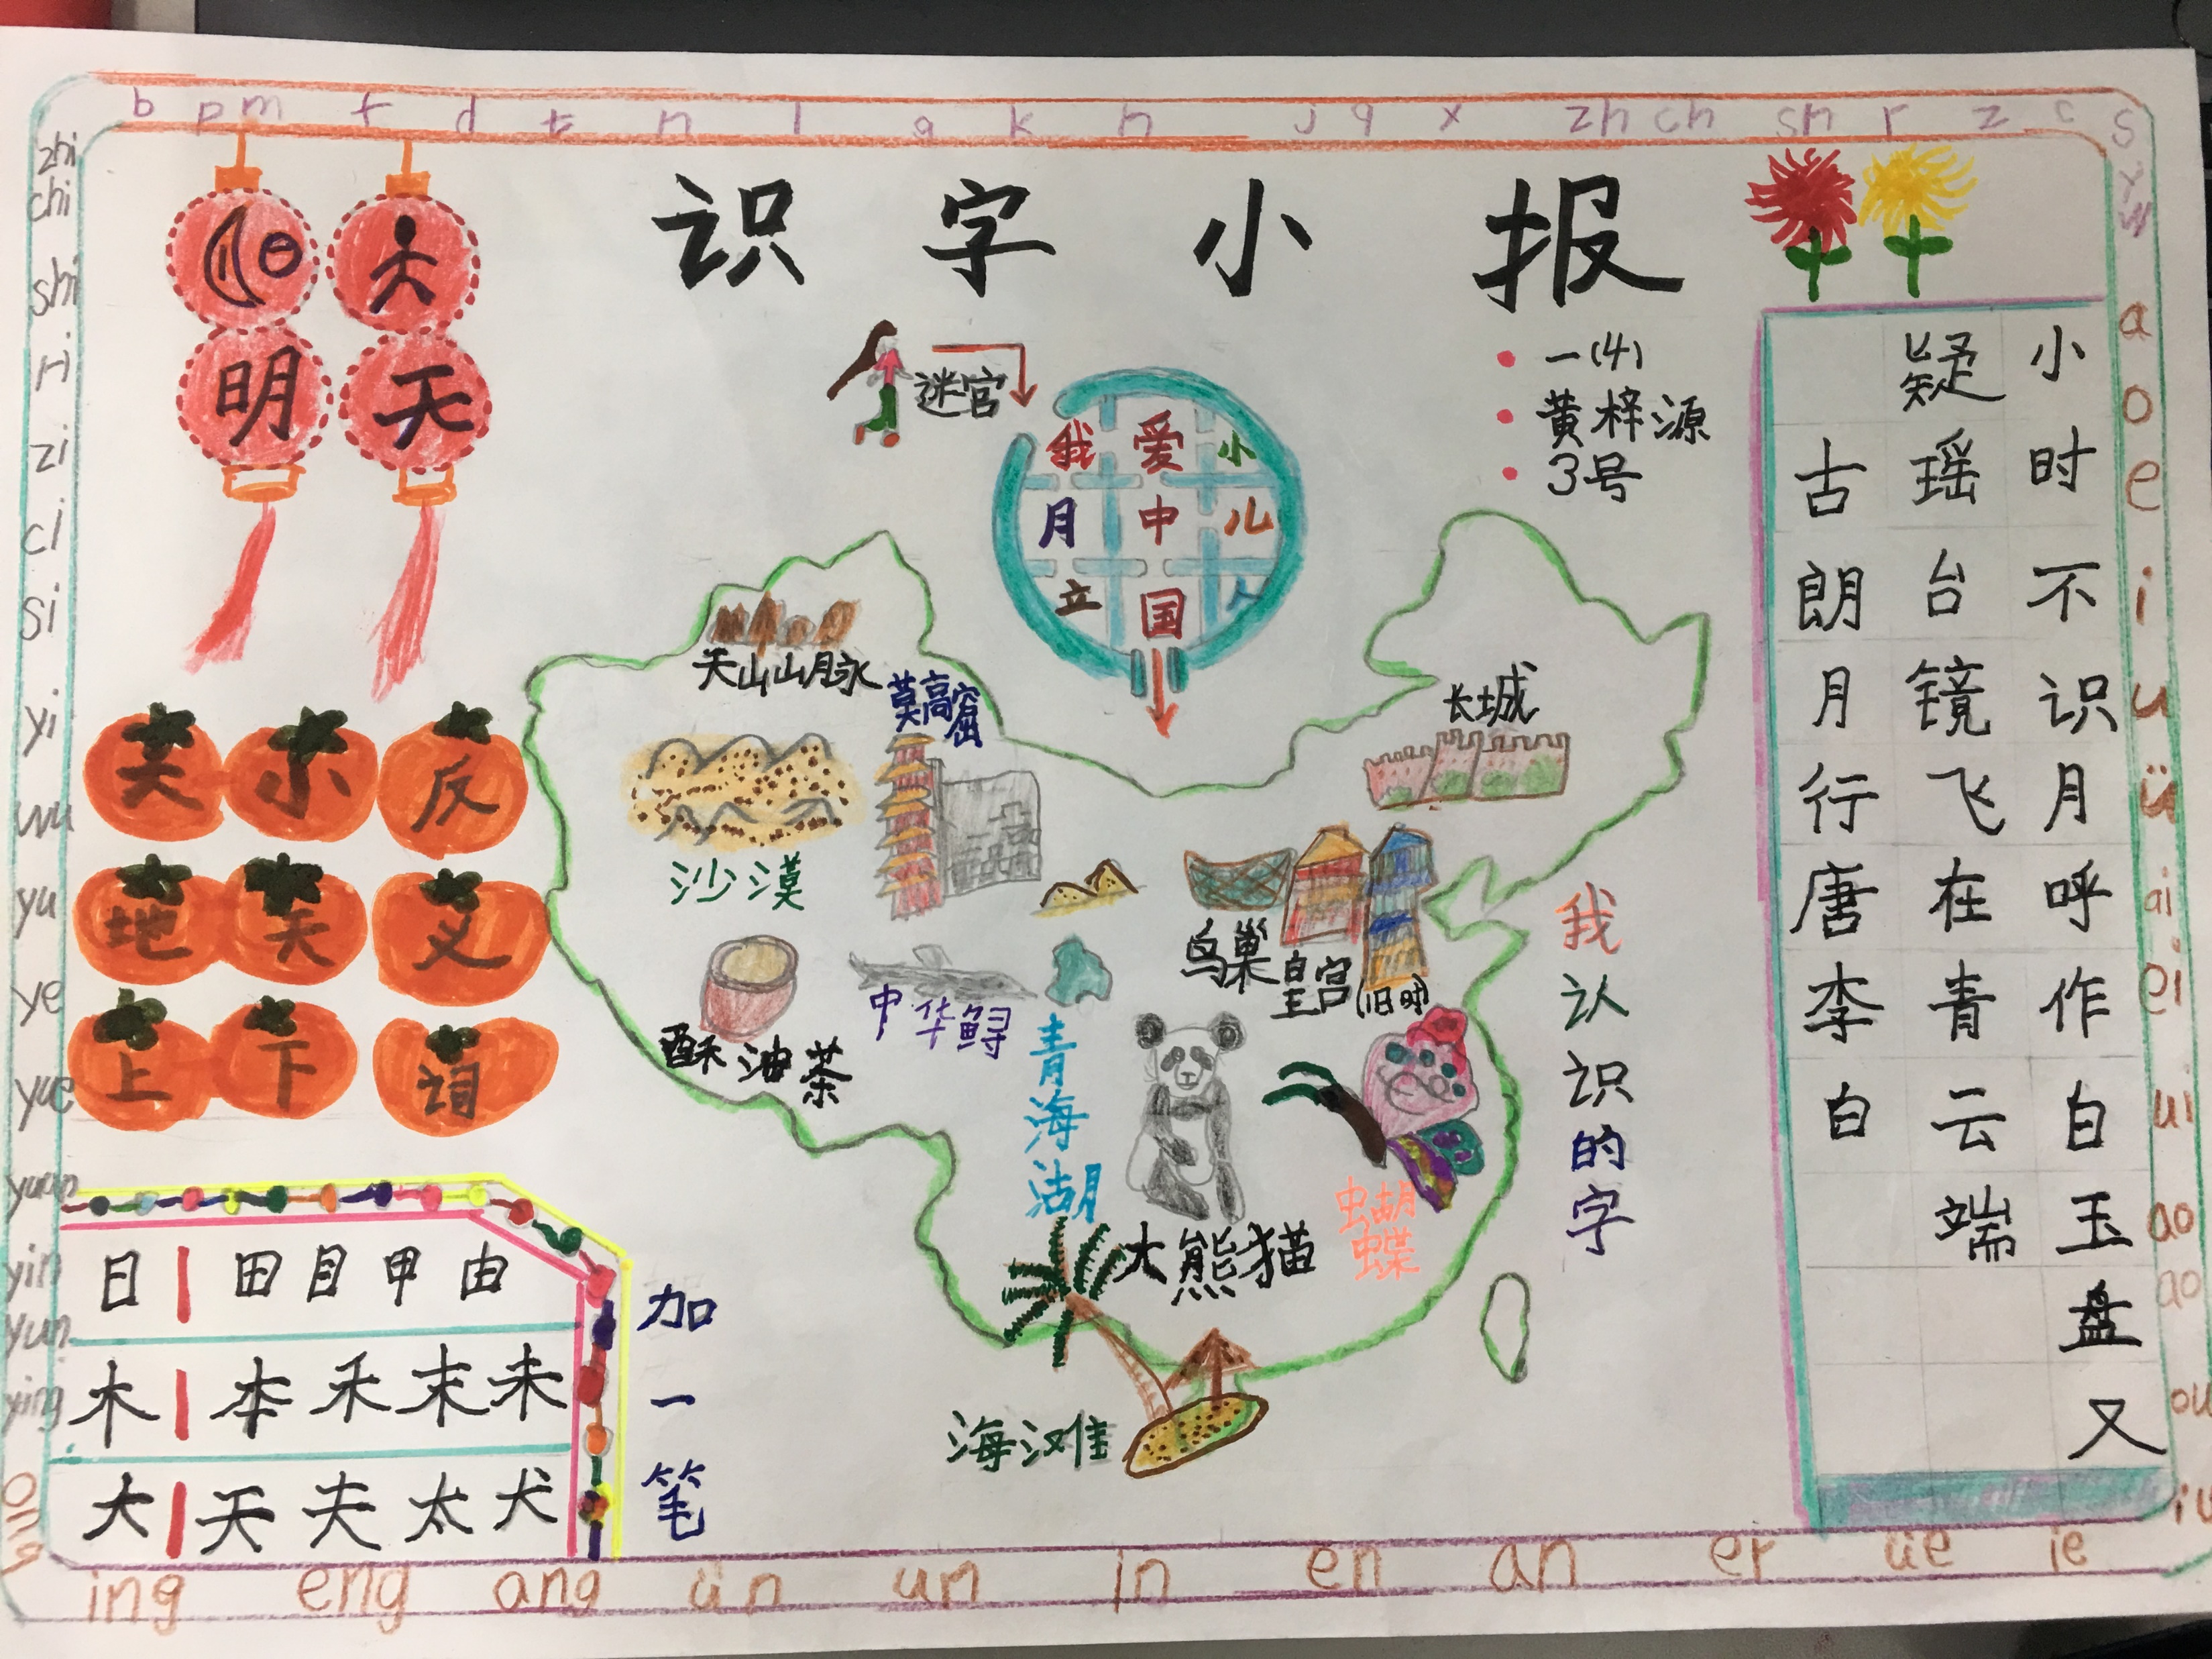 b p m f d t n l g k h j q x zh ch sh r z c s
y w
识字小报
明天
一(4)
黄梓源
3号
迷宫
我 爱 小
月 中 儿
立 国 人
天山山脉
莫高窟
长城
沙漠
鸟巢
皇宫(旧时)
酥油茶
中华鲟
青海湖
大熊猫
蝴蝶
海滩
我认识的字
大 小 反
地 天 义
上 下 词
日 田 目 甲 由
木 本 禾 末 未
大 天 夫 太 犬
加一笔
小时不识月呼作白玉盘又
疑瑶台镜飞在青云端
古朗月行唐李白
zhi
chi
shi
ri
zi
ci
si
yi
wu
yu
ye
yue
yuan
yin
yun
ying
ong
a
o
e
i
u
ü
ai
ei
ui
ao
ao
ou
iu
ing eng ang ün un in en an er üe ie